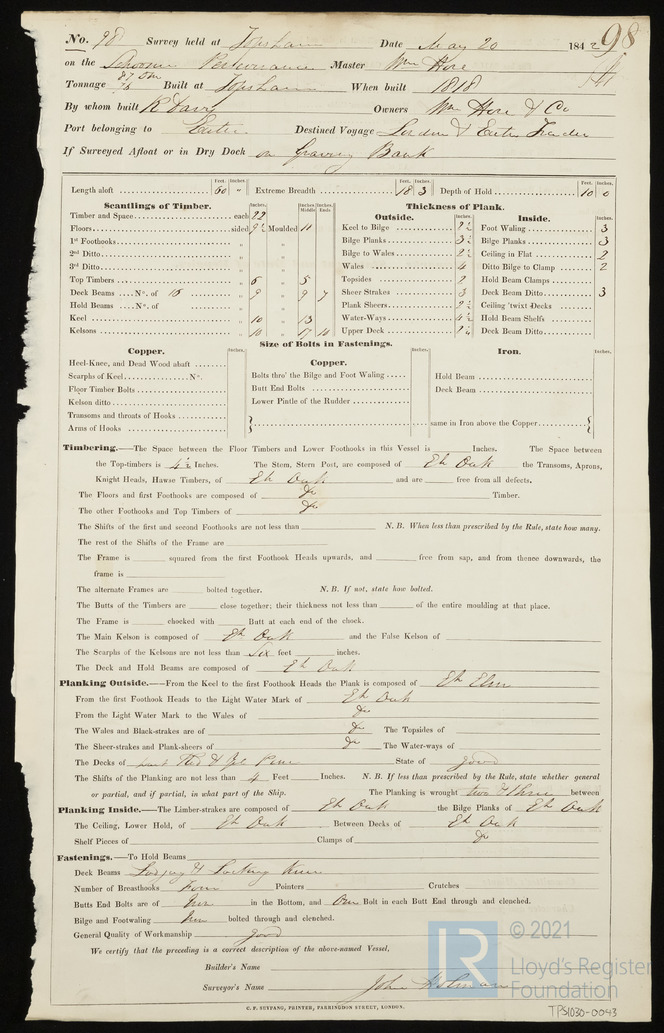 No. 98 Survey held at Topsham Date May 20 1842 98
on the Schooner Perseverance Master Wm Hore
Tonnage 87 Om 76 Built at Topsham When built 1818
By whom built R Davy Owners Wm Hore & Co
Port belonging to Exeter Destined Voyage London & Exeter Trader
If Surveyed Afloat or in Dry Dock on Graving Bank
Feet. Inches. Feet. Inches. Feet. Inches.
Length aloft 60 " Extreme Breadth 18 3 Depth of Hold 10 0
Scantlings of Timber. Inches. Inches Middle Inches Ends Thickness of Plank.
Outside. Inches. Inside. Inches.
Timber and Space each 22 Keel to Bilge 2½ Foot Waling 3
Floors sided 9½ Moulded 11 Bilge Planks 3½ Bilge Planks 3
1st Foothooks " " Bilge to Wales 2½ Ceiling in Flat 2
2nd Ditto " " Wales 4 Ditto Bilge to Clamp 2
3rd Ditto " " Topsides 2 Hold Beam Clamps
Top Timbers " 6 " 5 Sheer Strakes 3 Deck Beam Ditto 3
Deck Beams No. of 16 " 9 " 9 7 Plank Sheers 2½ Ceiling 'twixt Decks
Hold Beams No. of " " Water-Ways 4½ Hold Beam Shelfs
Keel " 10 " 13 Upper Deck 2¼ Deck Beam Ditto
Kelsons " 10 " 17 10
Size of Bolts in Fastenings.
Copper. Inches. Copper. Inches. Iron. Inches.
Heel-Knee, and Dead Wood abaft
Scarphs of Keel No. Bolts thro' the Bilge and Foot Waling Hold Beam
Floor Timber Bolts Butt End Bolts Deck Beam
Kelson ditto Lower Pintle of the Rudder
Transoms and throats of Hooks
Arms of Hooks same in Iron above the Copper
Timbering.—The Space between the Floor Timbers and Lower Foothooks in this Vessel is Inches. The Space between
the Top-timbers is 4½ Inches. The Stem, Stern Post, are composed of Eh Oak the Transoms, Aprons,
Knight Heads, Hawse Timbers, of Eh Oak and are free from all defects.
The Floors and first Foothooks are composed of do Timber.
The other Foothooks and Top Timbers of do
The Shifts of the first and second Foothooks are not less than N. B. When less than prescribed by the Rule, state how many.
The rest of the Shifts of the Frame are
The Frame is squared from the first Foothook Heads upwards, and free from sap, and from thence downwards, the
frame is
The alternate Frames are bolted together. N. B. If not, state how bolted.
The Butts of the Timbers are close together; their thickness not less than of the entire moulding at that place.
The Frame is chocked with Butt at each end of the chock.
The Main Kelson is composed of Eh Oak and the False Kelson of
The Scarphs of the Kelsons are not less than Six feet inches.
The Deck and Hold Beams are composed of Eh Oak
Planking Outside.—From the Keel to the first Foothook Heads the Plank is composed of Eh Elm
From the first Foothook Heads to the Light Water Mark of Eh Oak
From the Light Water Mark to the Wales of do
The Wales and Black-strakes are of do The Topsides of
The Sheer-strakes and Plank-sheers of do The Water-ways of
The Decks of Red & Yel Pine State of good
The Shifts of the Planking are not less than 4 Feet Inches. N. B. If less than prescribed by the Rule, state whether general
or partial, and if partial, in what part of the Ship. The Planking is wrought two & three between
Planking Inside.—The Limber-strakes are composed of Eh Oak the Bilge Planks of Eh Oak
The Ceiling, Lower Hold, of Eh Oak Between Decks of Eh Oak
Shelf Pieces of Clamps of do
Fastenings.—To Hold Beams
Deck Beams Lodging & Knees
Number of Breasthooks Four Pointers Crutches
Butts End Bolts are of Iron in the Bottom, and One Bolt in each Butt End through and clenched.
Bilge and Footwaling Iron bolted through and clenched.
General Quality of Workmanship good
We certify that the preceding is a correct description of the above-named Vessel,
Builder's Name
Surveyor's Name John Holman
C. F. SEYFANG, PRINTER, FARRINGDON STREET, LONDON.
LR © 2021
Lloyd's Register
Foundation
TPS1030-0043